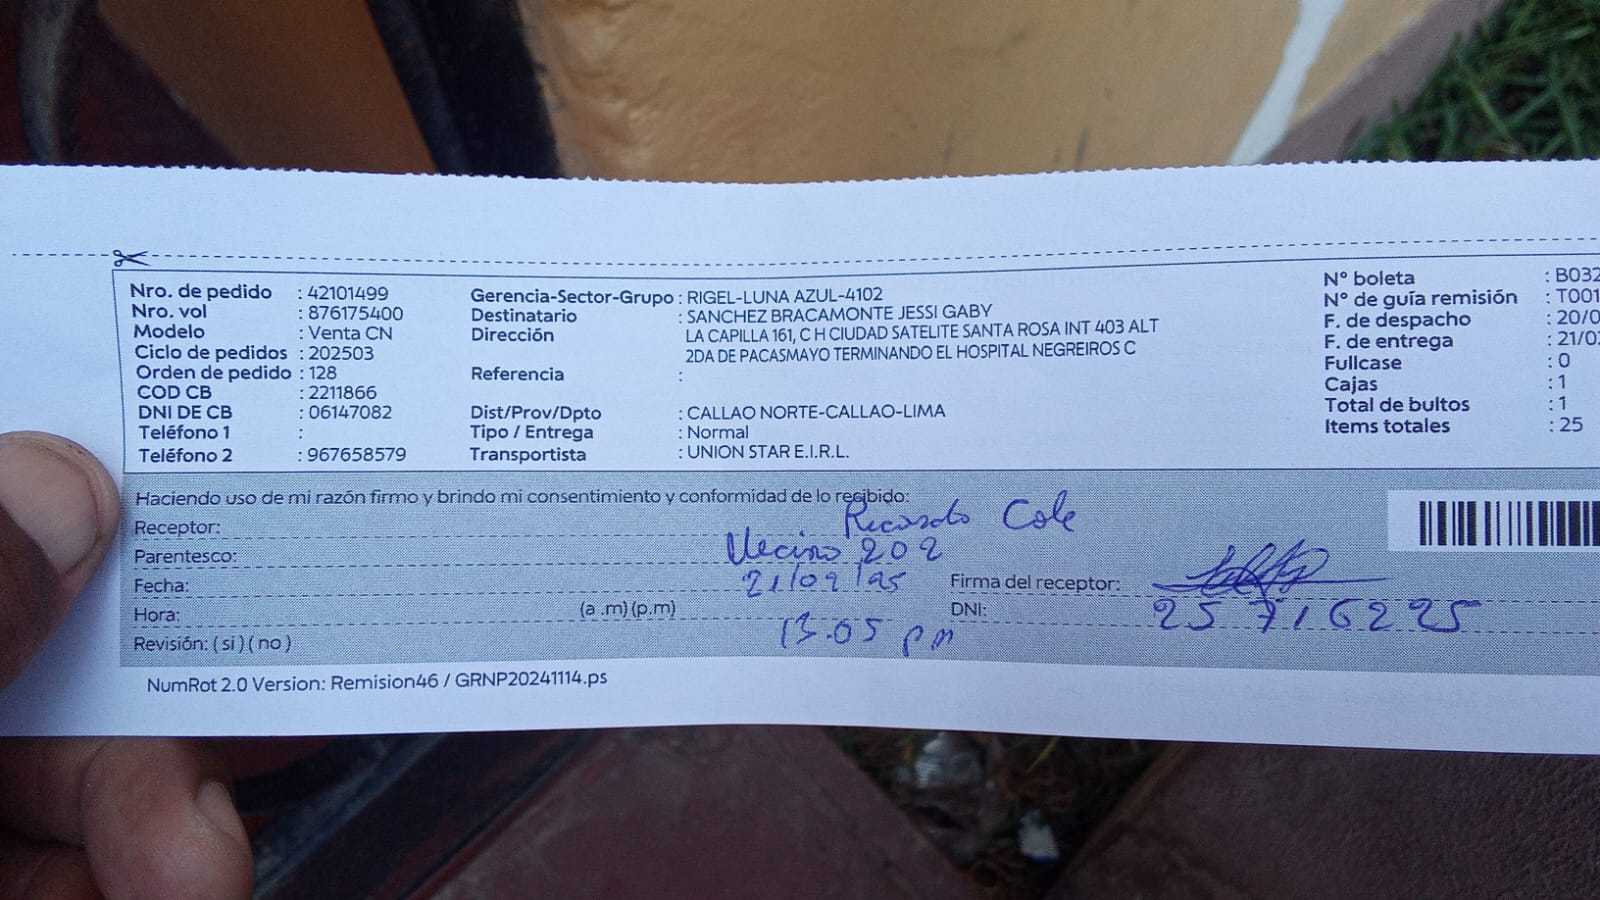 Nro. de pedido : 42101499
Nro. vol : 876175400
Modelo : Venta CN
Ciclo de pedidos : 202503
Orden de pedido : 128
COD CB : 2211866
DNI DE CB : 06147082
Teléfono 1 :
Teléfono 2 : 967658579
Gerencia-Sector-Grupo : RIGEL-LUNA AZUL-4102
Destinatario : SANCHEZ BRACAMONTE JESSI GABY
Dirección LA CAPILLA 161, C H CIUDAD SATELITE SANTA ROSA INT 403 ALT
2DA DE PACASMAYO TERMINANDO EL HOSPITAL NEGREIROS C
Referencia :
Dist/Prov/Dpto : CALLAO NORTE-CALLAO-LIMA
Tipo / Entrega : Normal
Transportista : UNION STAR E.I.R.L.
N° boleta : B032
N° de guía remisión : T001
F. de despacho : 20/0
F. de entrega : 21/0
Fullcase : 0
Cajas : 1
Total de bultos : 1
Items totales : 25
Haciendo uso de mi razón firmo y brindo mi consentimiento y conformidad de lo recibido:
Receptor: Ricardo
Parentesco: Vecino 202
Fecha: 21/02/25
Firma del receptor:
Hora: (a .m) (p.m) 13.05 pm
DNI: 25716225
Revisión: ( si ) ( no )
NumRot 2.0 Version: Remision46 / GRNP20241114.ps